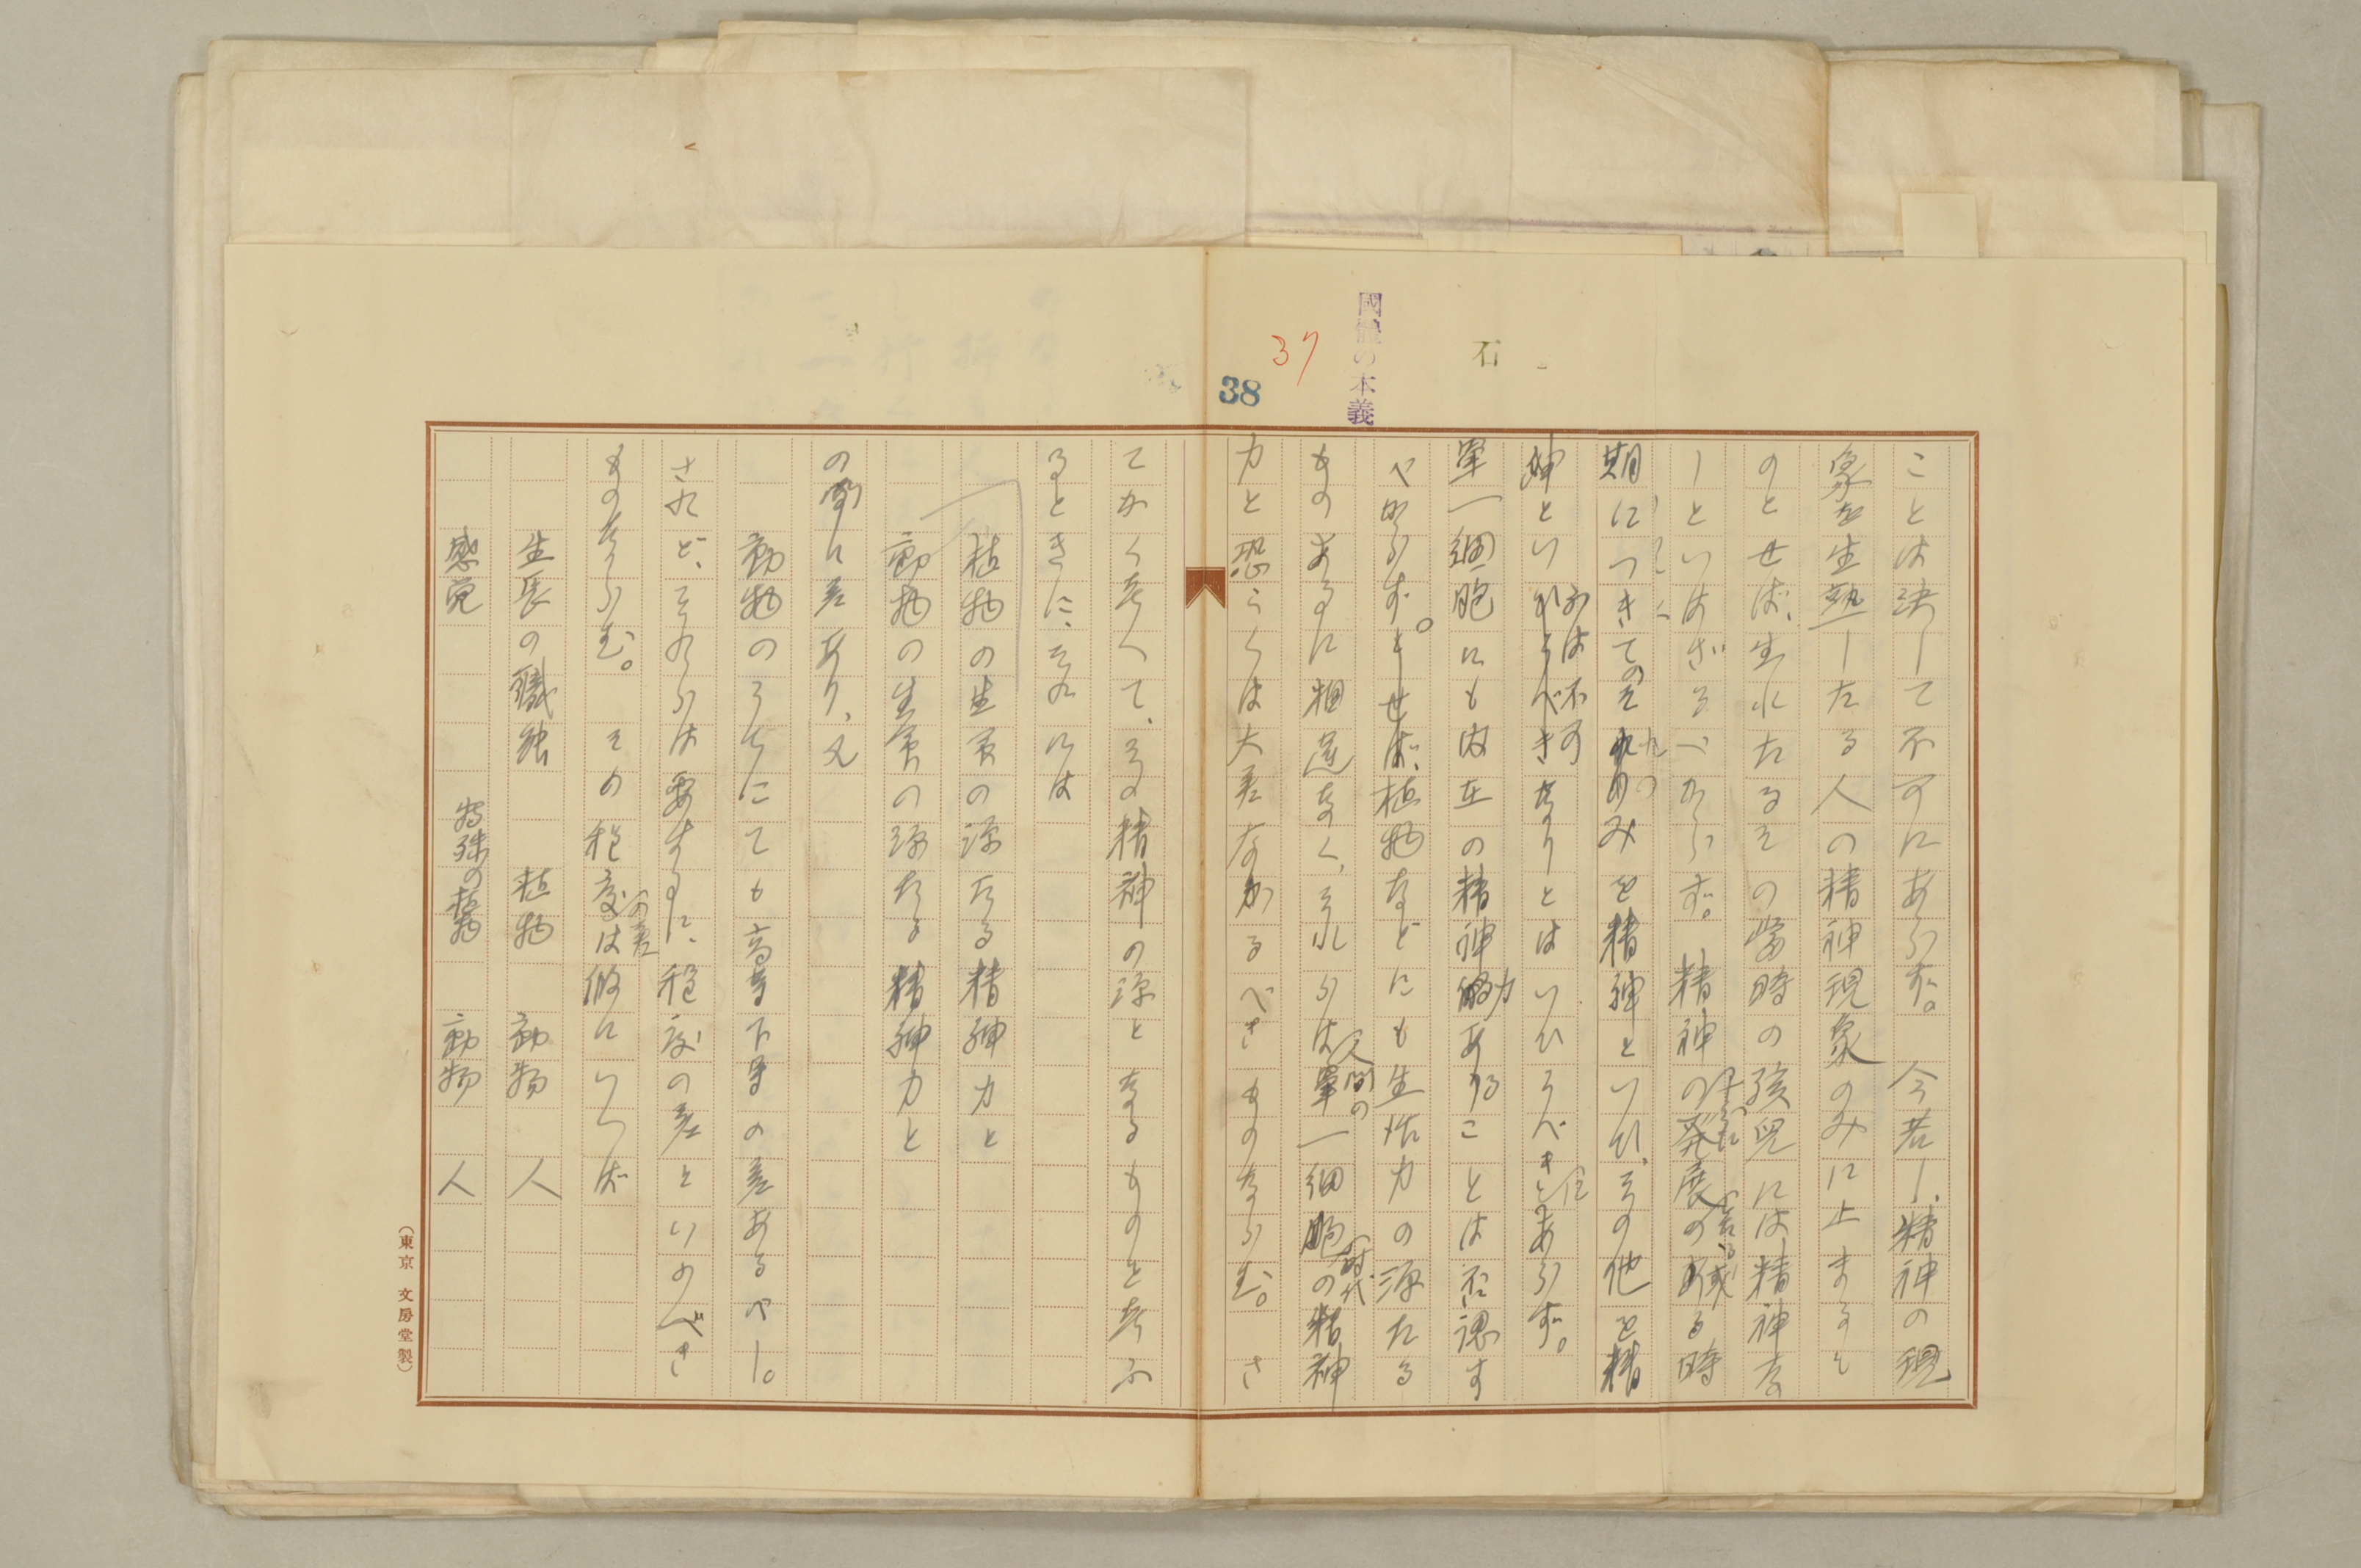 石
國體の本義
37
38
ことは決して不可にあらず。今若し、精神の現
象を生熟したる人の精神現象のみに止まるも
のとせば、生れたるその当時の孩児には精神な
しといはざるべからず。精神の発展の或る時
期につきてのそれのみを精神といひ、その他を精
神といふは不可なりとはいひうべきにあらず。
単一細胞にも内在の精神力あることは否認す
べからず。とせば、植物などにも生活力の源たる
ものあるに相違なく、それらは人間の単一細胞時代の精神
力と恐らくは大差なかるべきものならむ。さ
てかく考へて、その精神の源となるものと考ふ
るときに、それには
植物の生命の源たる精神力と
動物の生命の源たる精神力と
の間に差あり、又
動物のうちにても高等下等の差あるべし。
されど、それらは要するに、程度の差といのべき
ものならむ。その程度の差は仮にいへば
生長の職能 植物 動物 人
感覚 特殊の植物 動物 人
(東京 文房堂製)